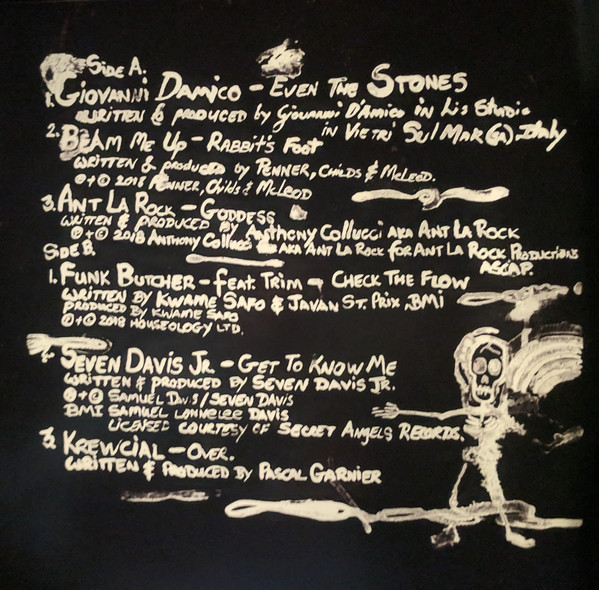 Side A.
1. Giovanni Damico - Even The Stones
Written & produced by Giovanni D'Amico in his studio
in Vietri Sul Mar (SA). Italy
2. Beam Me Up - Rabbit's Foot
Written & produced by Penner, Childs & McLeod.
℗+© 2018 Penner, Childs & McLeod
3. Ant La Rock - Goddess
Written & produced by Anthony Collucci aka Ant La Rock
℗+© 2018 Anthony Collucci aka Ant La Rock for Ant La Rock Productions
ASCAP.
Side B.
1. Funk Butcher - feat. Trim - Check The Flow
Written by Kwame Safo & Javan St. Prix, BMI
Produced by Kwame Safo
℗+© 2018 Houseology Ltd.
2. Seven Davis Jr. - Get To Know Me
Written & produced by Seven Davis Jr.
℗+© Samuel Davis/Seven Davis
BMI Samuel Lonnelee Davis
Licensed courtesy of Secret Angels Records.
3. Krewcial - Over.
Written & produced by Pascal Garnier